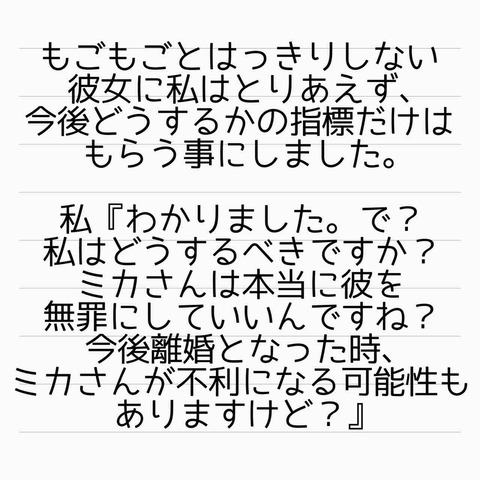 もごもごとはっきりしない
彼女に私はとりあえず、
今後どうするかの指標だけは
もらう事にしました。
私『わかりました。で？
私はどうするべきですか？
ミカさんは本当に彼を
無罪にしていいんですね？
今後離婚となった時、
ミカさんが不利になる可能性も
ありますけど？』